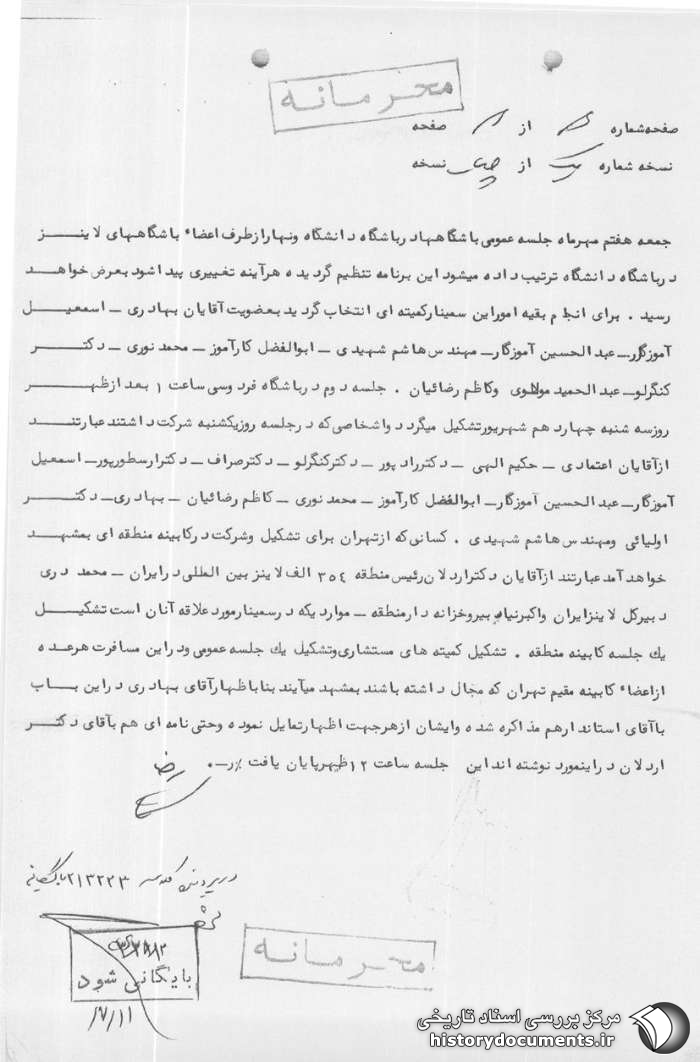 محرمانه
صفحه شماره از صفحه
نسخه شماره یک از چهار نسخه
جمعه هفتم مهرماه جلسه عمومی باشگاهها در باشگاه دانشگاه ونهار از طرف اعضاء باشگاههای لاینز
در باشگاه دانشگاه ترتیب داده میشود این برنامه تنظیم گردیده هر آینه تغییری پیدا شود بعرض خواهد
رسید . برای انجام بقیه امور این سمینار کمیته ای انتخاب گردید بعضویت آقایان بهادری ـ اسمعیل
آموزگار ـ عبدالحسین آموزگار ـ مهندس هاشم شهیدی ـ ابوالفضل کارآموز ـ محمد نوری ـ دکتر
کنگرلو ـ عبدالحمید مولوی وکاظم رضائیان . جلسه دوم در باشگاه فردوسی ساعت ۱ بعد از ظهر
روز سه شنبه چهاردهم شهریور تشکیل میگردد واشخاصی که در جلسه روز یکشنبه شرکت داشتند عبارتند
از آقایان اعتمادی ـ حکیم الهی ـ دکتر راد پور ـ دکتر کنگرلو ـ دکتر صراف ـ دکتر ارسطورپور ـ اسمعیل
آموزگار ـ عبدالحسین آموزگار ـ ابوالفضل کارآموز ـ محمد نوری ـ کاظم رضائیان ـ بهادری ـ دکتر
اولیائی ومهندس هاشم شهیدی . کسانی که از تهران برای تشکیل وشرکت در کابینه منطقه ای بمشهد
خواهد آمد عبارتند از آقایان دکتر اردلان رئیس منطقه ۳۵۴ الف لاینز بین المللی در ایران ـ محمد دری
دبیر کل لاینز ایران واکبر نیاپیرو خزانه دار منطقه ـ مواردیکه در سمینار مورد علاقه آنان است تشکیل
یك جلسه کابینه منطقه . تشکیل کمیته های مستشاری وتشکیل یك جلسه عمومی ودر این مسافرت هر عده
از اعضاء کابینه مقیم تهران که مجال داشته باشند بمشهد میآیند بنا باظهار آقای بهادری در این باب
با آقای استاندار هم مذاکره شده وایشان از هر جهت اظهار تمایل نموده وحتی نامه ای هم بآقای دکتر
اردلان در اینمورد نوشته اند این جلسه ساعت ۱۲ ظهر پایان یافت %ر ـ۰
۲۱۳۲۲۳
بایگانی شود
محرمانه
مرکز بررسی اسناد تاریخی
historydocuments.ir